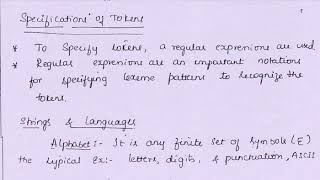 Specification of Tokens
* To Specify tokens, a regular expressions are used.
* Regular expressions are an important notations
for specifying lexeme patterns to recognize the
tokens.
Strings & Languages
Alphabet :- It is any finite set of symbols (Σ)
the typical Ex:- letters, digits, & punctuation, ASCII